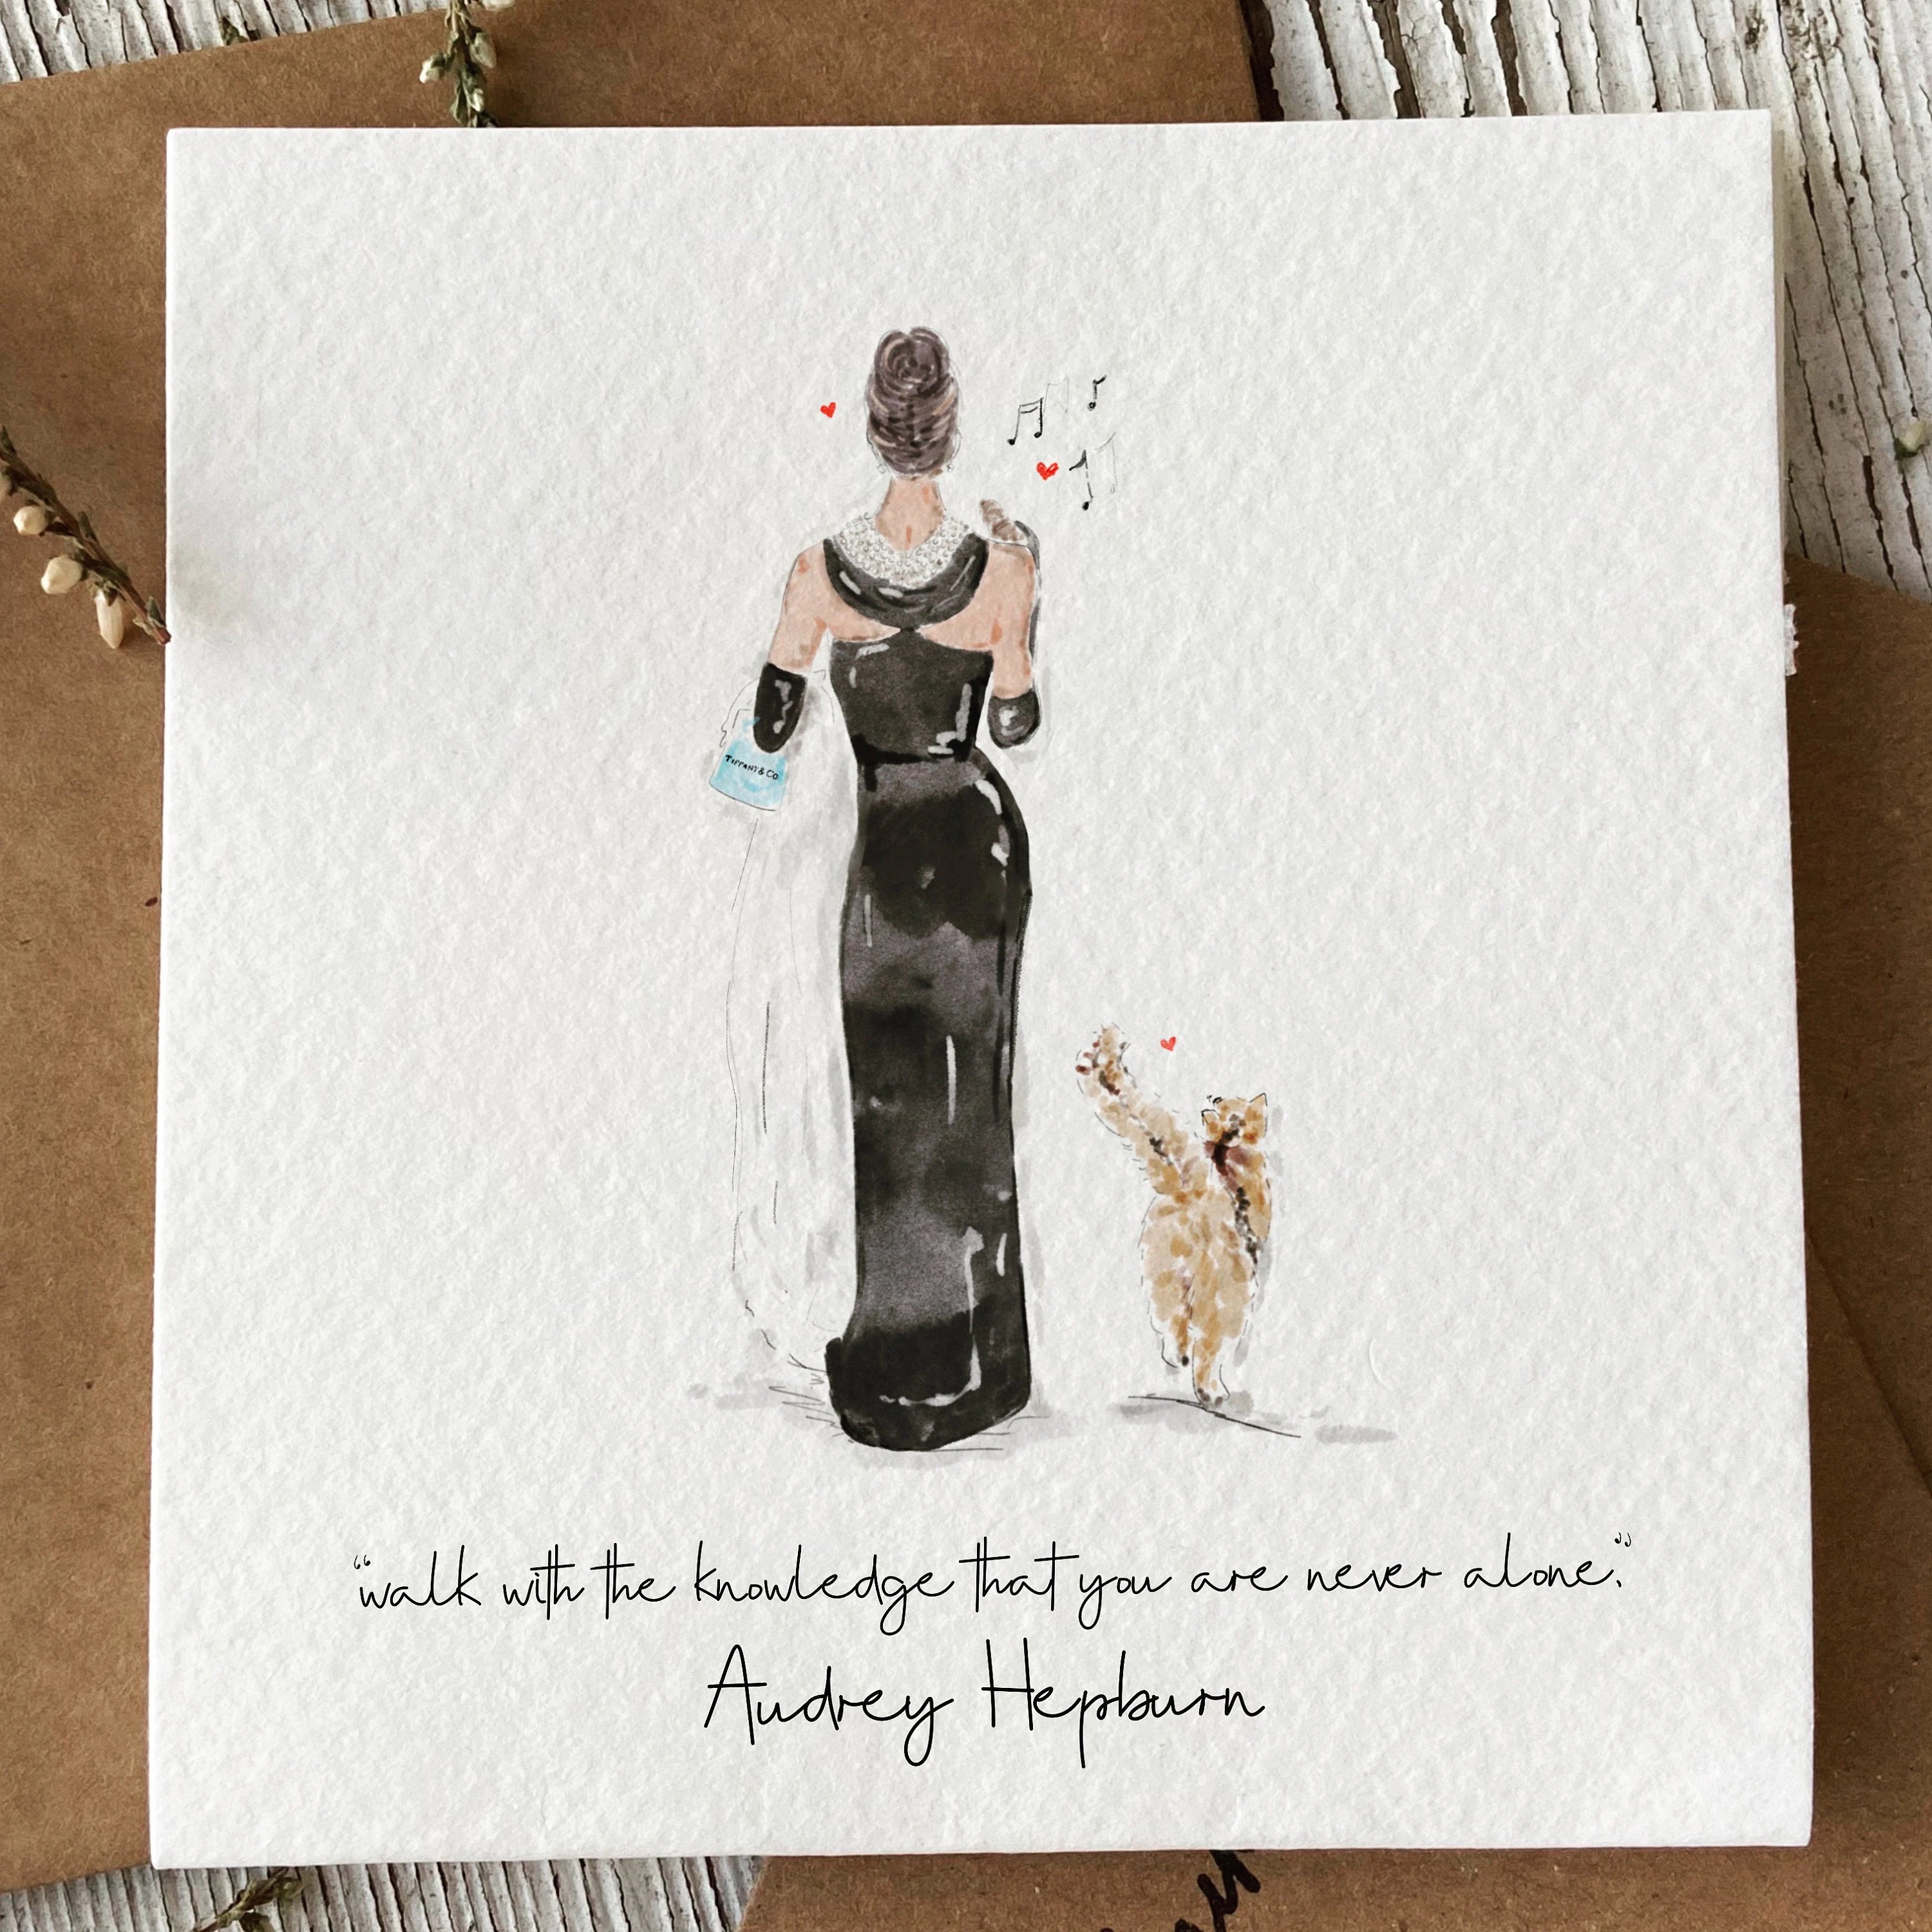 TIFFANY & CO.
“walk with the knowledge that you are never alone.”
Audrey Hepburn